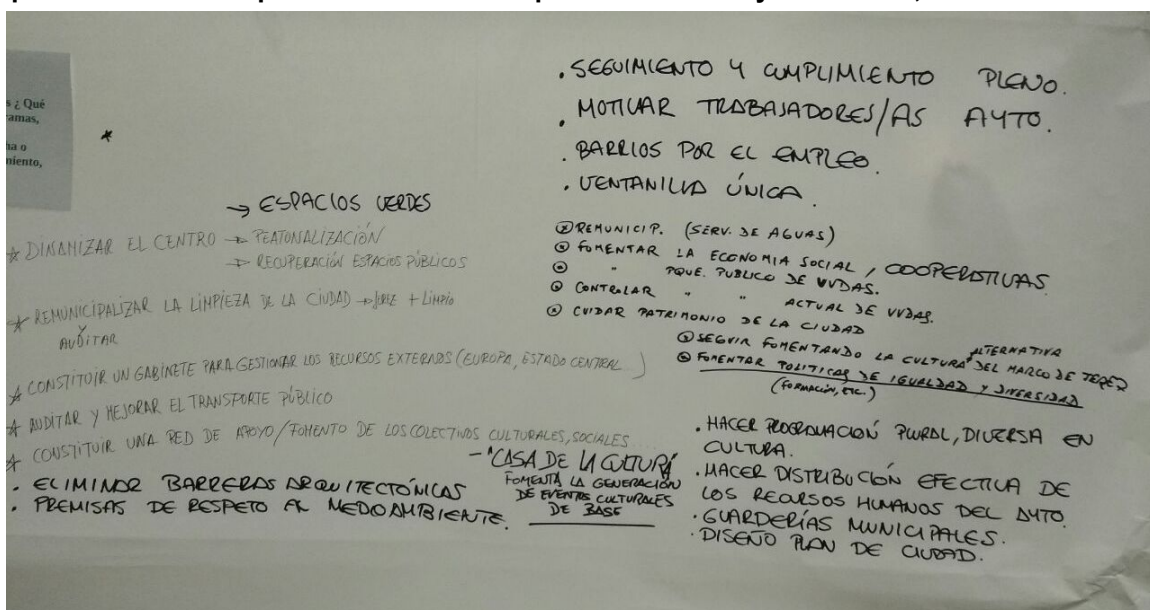 s ¿ Qué
amas,
na o
miento,
*
→ ESPACIOS VERDES
☆ DINAMIZAR EL CENTRO → PEATONALIZACIÓN
→ RECUPERACIÓN ESPACIOS PÚBLICOS
☆ REMUNICIPALIZAR LA LIMPIEZA DE LA CIUDAD → + LIMPIO
AUDITAR
☆ CONSTITUIR UN GABINETE PARA GESTIONAR LOS RECURSOS EXTERNOS (EUROPA, ESTADO CENTRAL...)
☆ AUDITAR Y MEJORAR EL TRANSPORTE PÚBLICO
☆ CONSTITUIR UNA RED DE APOYO/FOMENTO DE LOS COLECTIVOS CULTURALES, SOCIALES....
- "CASA DE LA CULTURA"
FOMENTA LA GENERACIÓN
DE EVENTOS CULTURALES
DE BASE
· ELIMINAR BARRERAS ARQUITECTÓNICAS
· PREMISAS DE RESPETO AL MEDOAMBIENTE.
· SEGUIMIENTO Y CUMPLIMIENTO PLENO.
· MOTIVAR TRABAJADORES/AS AYTO.
· BARRIOS POR EL EMPLEO.
· VENTANILLA ÚNICA.
⊙ REMUNICIP. (SERV. DE AGUAS)
⊙ FOMENTAR LA ECONOMIA SOCIAL, COOPERATIVAS
⊙ " PQUE. PUBLICO DE VVDAS.
⊙ CONTROLAR " " ACTUAL DE VVDAS.
⊙ CUIDAR PATRIMONIO DE LA CIUDAD
⊙ SEGUIR FOMENTANDO LA CULTURA ALTERNATIVA DEL MARCO DE JEREZ
⊙ FOMENTAR POLITICAS DE IGUALDAD Y DIVERSIDAD
(FORMACIÓN, ETC.)
· HACER PROGRAMACIÓN PLURAL, DIVERSA EN
CULTURA.
· HACER DISTRIBUCIÓN EFECTIVA DE
LOS RECURSOS HUMANOS DEL AYTO.
· GUARDERÍAS MUNICIPALES.
· DISEÑO PLAN DE CIUDAD.